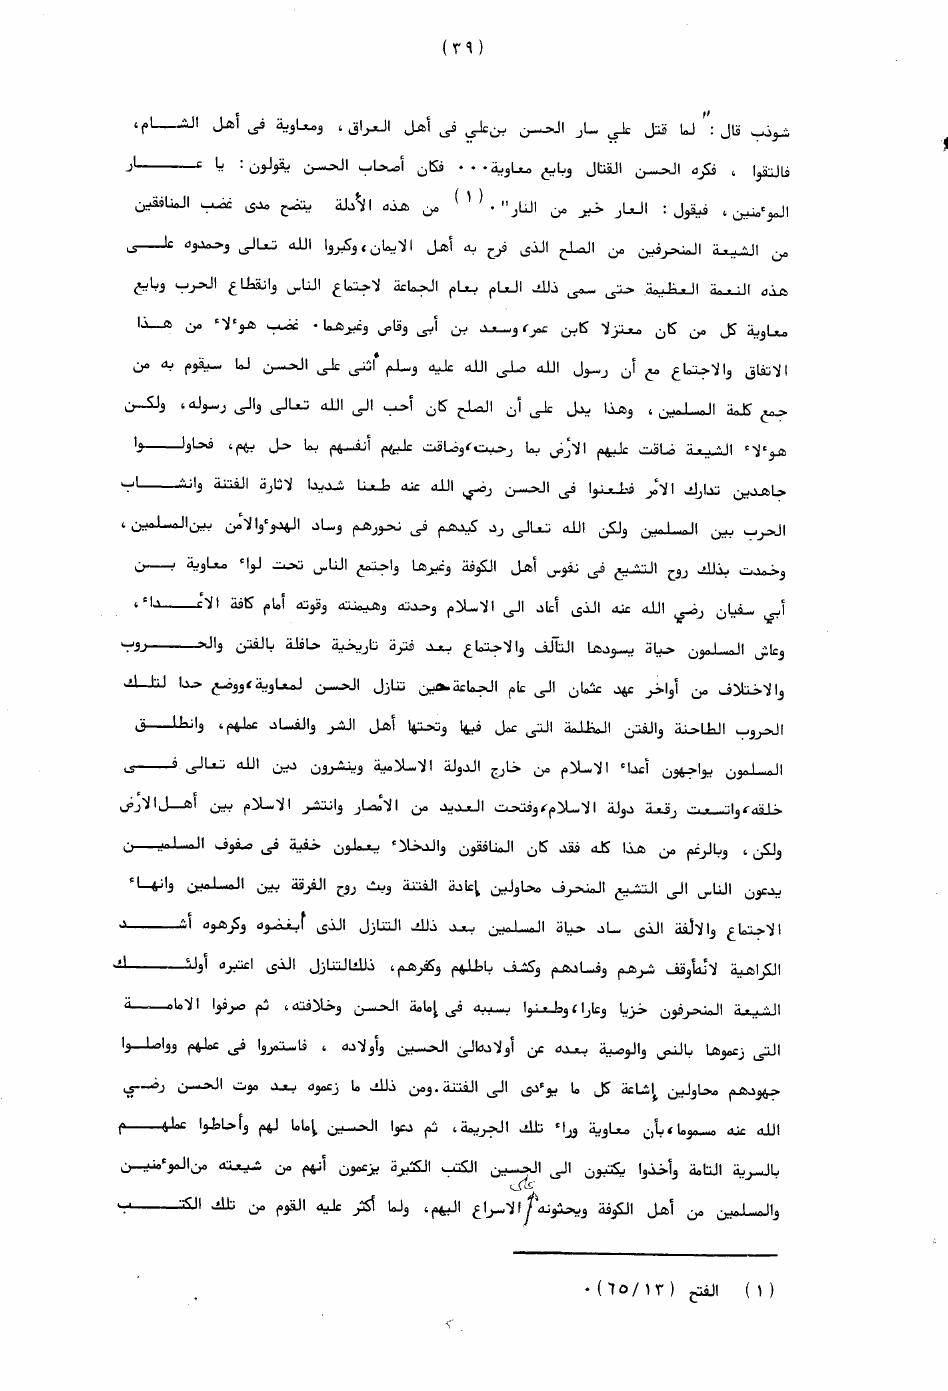 (٣٩)
شوذب قال : " لما قتل علي سار الحسن بن علي فى أهل العراق ، ومعاوية فى أهل الشـــام،
فالتقوا ، فكره الحسن القتال وبايع معاوية ٠٠٠ فكان أصحاب الحسن يقولون : يا عـــــار
الموءمنين ، فيقول : العار خير من النار" ٠ (١) من هذه الأدلة يتضح مدى غضب المنافقين
من الشيعة المنحرفين من الصلح الذى فرح به أهل الايمان، وكبروا الله تعالى وحمدوه علـــى
هذه النعمة العظيمة حتى سمى ذلك العام بعام الجماعة لاجتماع الناس وانقطاع الحرب وبايع
معاوية كل من كان معتزلا كابن عمر، وسعد بن أبى وقاص وغيرهما ٠ غضب هوءلاء من هــذا
الاتفاق والاجتماع مع أن رسول الله صلى الله عليه وسلم أثنى على الحسن لما سيقوم به من
جمع كلمة المسلمين ، وهذا يدل على أن الصلح كان أحب الى الله تعالى والى رسوله، ولكــن
هوءلاء الشيعة ضاقت عليهم الأرض بما رحبت، وضاقت عليهم أنفسهم بما حل بهم، فحاولـــوا
جاهدين تدارك الأمر فطعنوا فى الحسن رضي الله عنه طعنا شديدا لاثارة الفتنة وانشـــاب
الحرب بين المسلمين ولكن الله تعالى رد كيدهم فى نحورهم وساد الهدوء والأمن بين المسلمين ،
وخمدت بذلك روح التشيع فى نفوس أهل الكوفة وغيرها واجتمع الناس تحت لواء معاوية بـــن
أبي سفيان رضي الله عنه الذى أعاد الى الاسلام وحدته وهيمنته وقوته أمام كافة الأعـــداء ،
وعاش المسلمون حياة يسودها التآلف والاجتماع بعد فترة تاريخية حافلة بالفتن والحـــروب
والاختلاف من أواخر عهد عثمان الى عام الجماعة حين تنازل الحسن لمعاوية، ووضع حدا لتلـك
الحروب الطاحنة والفتن المظلمة التى عمل فيها وتحتها أهل الشر والفساد عملهم، وانطلـــق
المسلمون يواجهون أعداء الاسلام من خارج الدولة الاسلامية وينشرون دين الله تعالى فـــى
خلقه، واتسعت رقعة دولة الاسلام، وفتحت العديد من الأمصار وانتشر الاسلام بين أهــل الأرض
ولكن ، وبالرغم من هذا كله فقد كان المنافقون والدخلاء يعملون خفية فى صفوف المسلميـــن
يدعون الناس الى التشيع المنحرف محاولين إعادة الفتنة وبث روح الفرقة بين المسلمين وانهــاء
الاجتماع والألفة الذى ساد حياة المسلمين بعد ذلك التنازل الذى أبغضوه وكرهوه أشـــد
الكراهية لأنه أوقف شرهم وفسادهم وكشف باطلهم وكفرهم، ذلك التنازل الذى اعتبره أولئـــك
الشيعة المنحرفون خزيا وعارا، وطعنوا بسببه فى إمامة الحسن وخلافته، ثم صرفوا الامامـــة
التى زعموها بالنص والوصية بعده عن أولاده الى الحسين وأولاده ، فاستمروا فى عملهم وواصلــوا
جهودهم محاولين إشاعة كل ما يوءدى الى الفتنة . ومن ذلك ما زعموه بعد موت الحسن رضــي
الله عنه مسموما، بأن معاوية وراء تلك الجريمة، ثم دعوا الحسين إماما لهم وأحاطوا عملهـــم
بالسرية التامة وأخذوا يكتبون الى الحسين الكتب الكثيرة يزعمون أنهم من شيعته من الموءمنيــن
والمسلمين من أهل الكوفة ويحثونه على الاسراع اليهم، ولما أكثر عليه القوم من تلك الكتـــب
(١) الفتح (٦٥/١٣) ٠